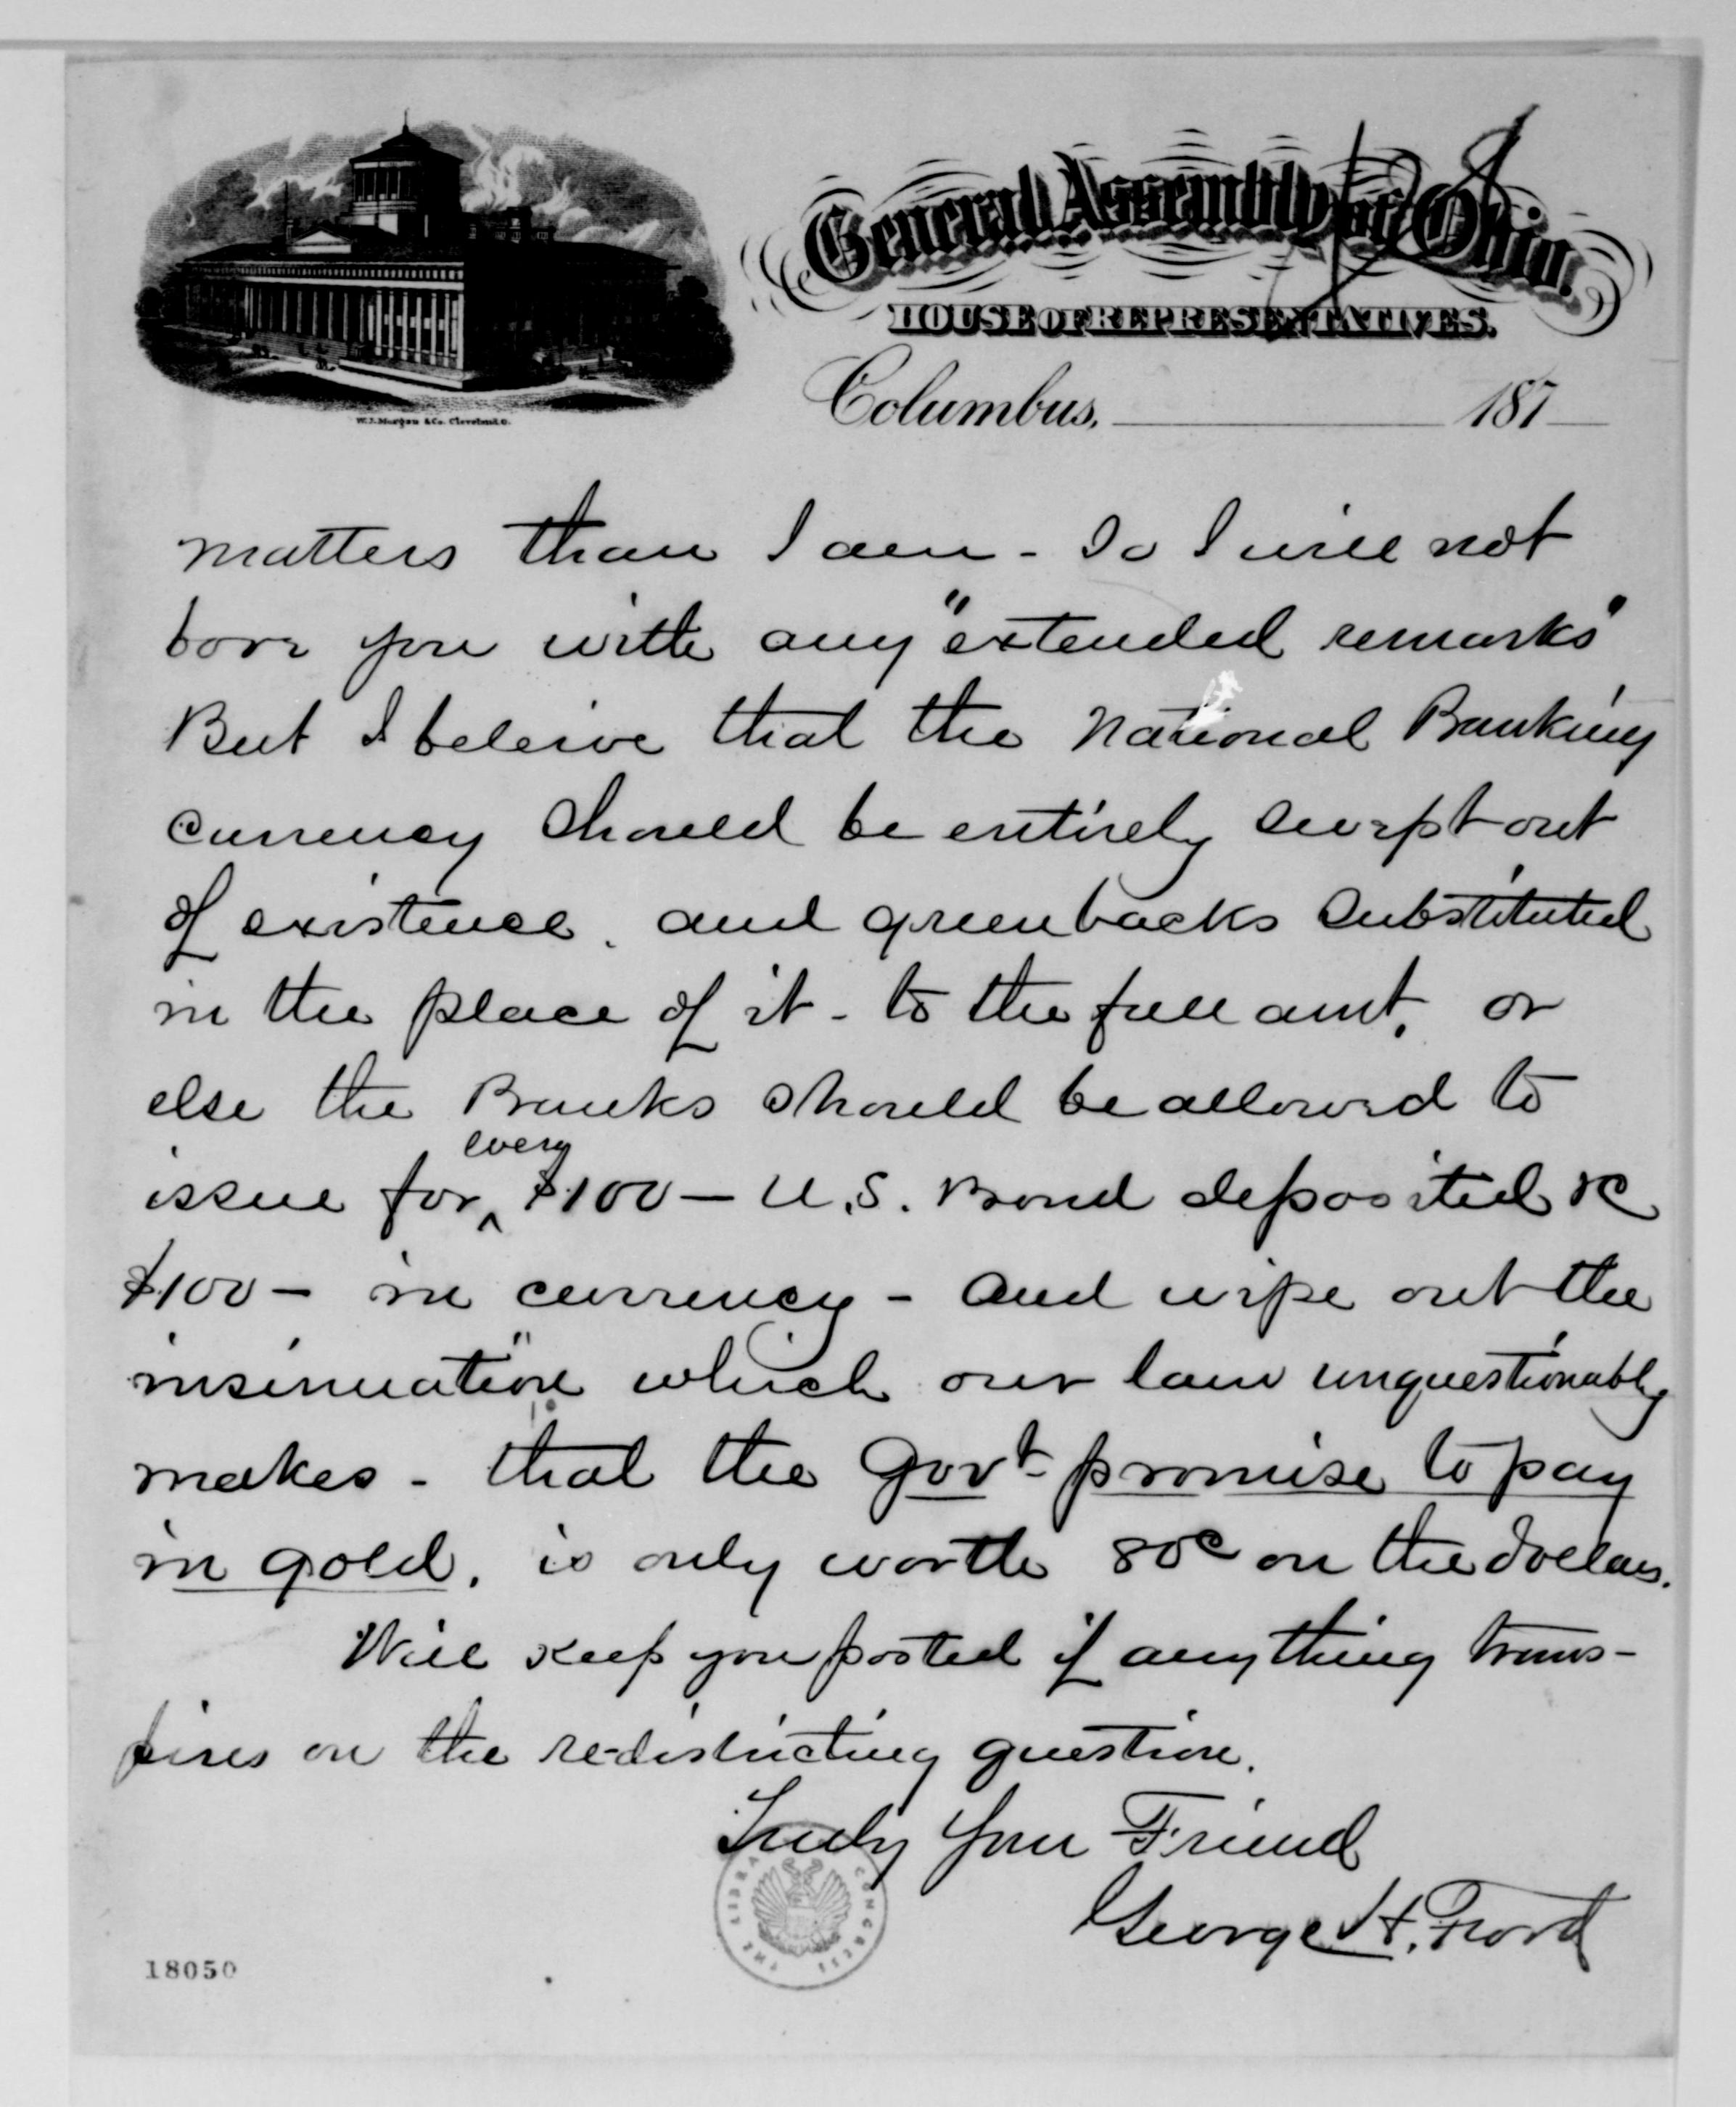 General Assembly of Ohio.
HOUSE OF REPRESENTATIVES.
Columbus, 187
W.J. Morgan & Co. Cleveland, O.
matters than I am - So I will not
bore you with any "extended remarks"
But I beleive that the National Banking
currency should be entirely swept out
of existence, and greenbacks substituted
in the place of it - to the full amt. or
else the Banks should be allowed to
every
issue for ^ $100 - U.S. Bond deposited &c
$100 - in currency - and wipe out the
insinuation" which our law unquestionably
makes - that the Govt promise to pay
in gold, is only worth 80c on the dollar.
Will keep you posted if anything trans-
pires on the re-districting question.
Truly Your Friend
George H. Ford
THE LIBRARY CONGRESS
18050